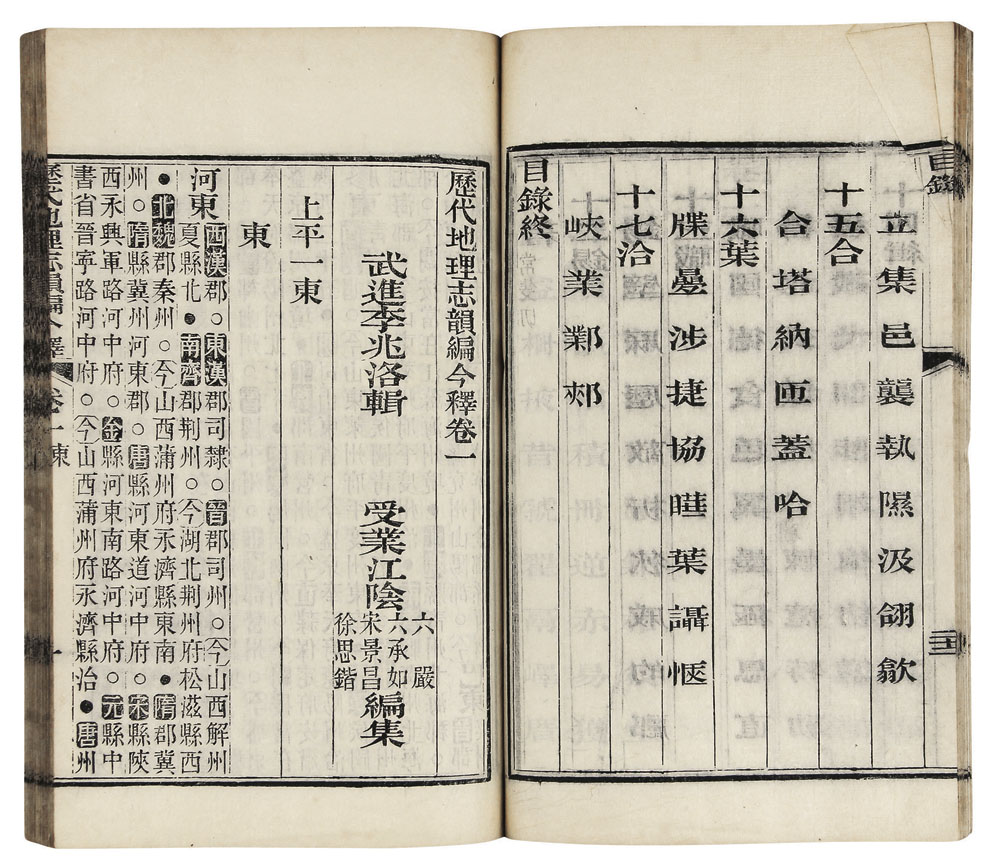 目錄
立集邑襲執隰汲翖歙
十五合
合塔納匝蓋哈
十六葉
牒曡涉捷協曄葉讘愜
十七洽
峽業鄴郟
目錄終
歷代地理志韻編今釋卷一
武進李兆洛輯 受業江陰 六嚴 六承如 宋景昌 徐思鍇 編集
上平一東
東
河東 西漢郡○東漢郡司隸○晉郡司州○今山西解州
夏縣北●南齊郡荊州○今湖北荊州府松滋縣西
●北魏郡秦州○今山西蒲州府永濟縣東南●隋郡冀
州○隋縣冀州河東郡○唐縣河東道河中府○宋縣陝
西永興軍路河中府○金縣河東南路河中府○元縣中
書省晉寧路河中府○今山西蒲州府永濟縣治●唐州
歷代地理志韻編今釋 卷一 東 一